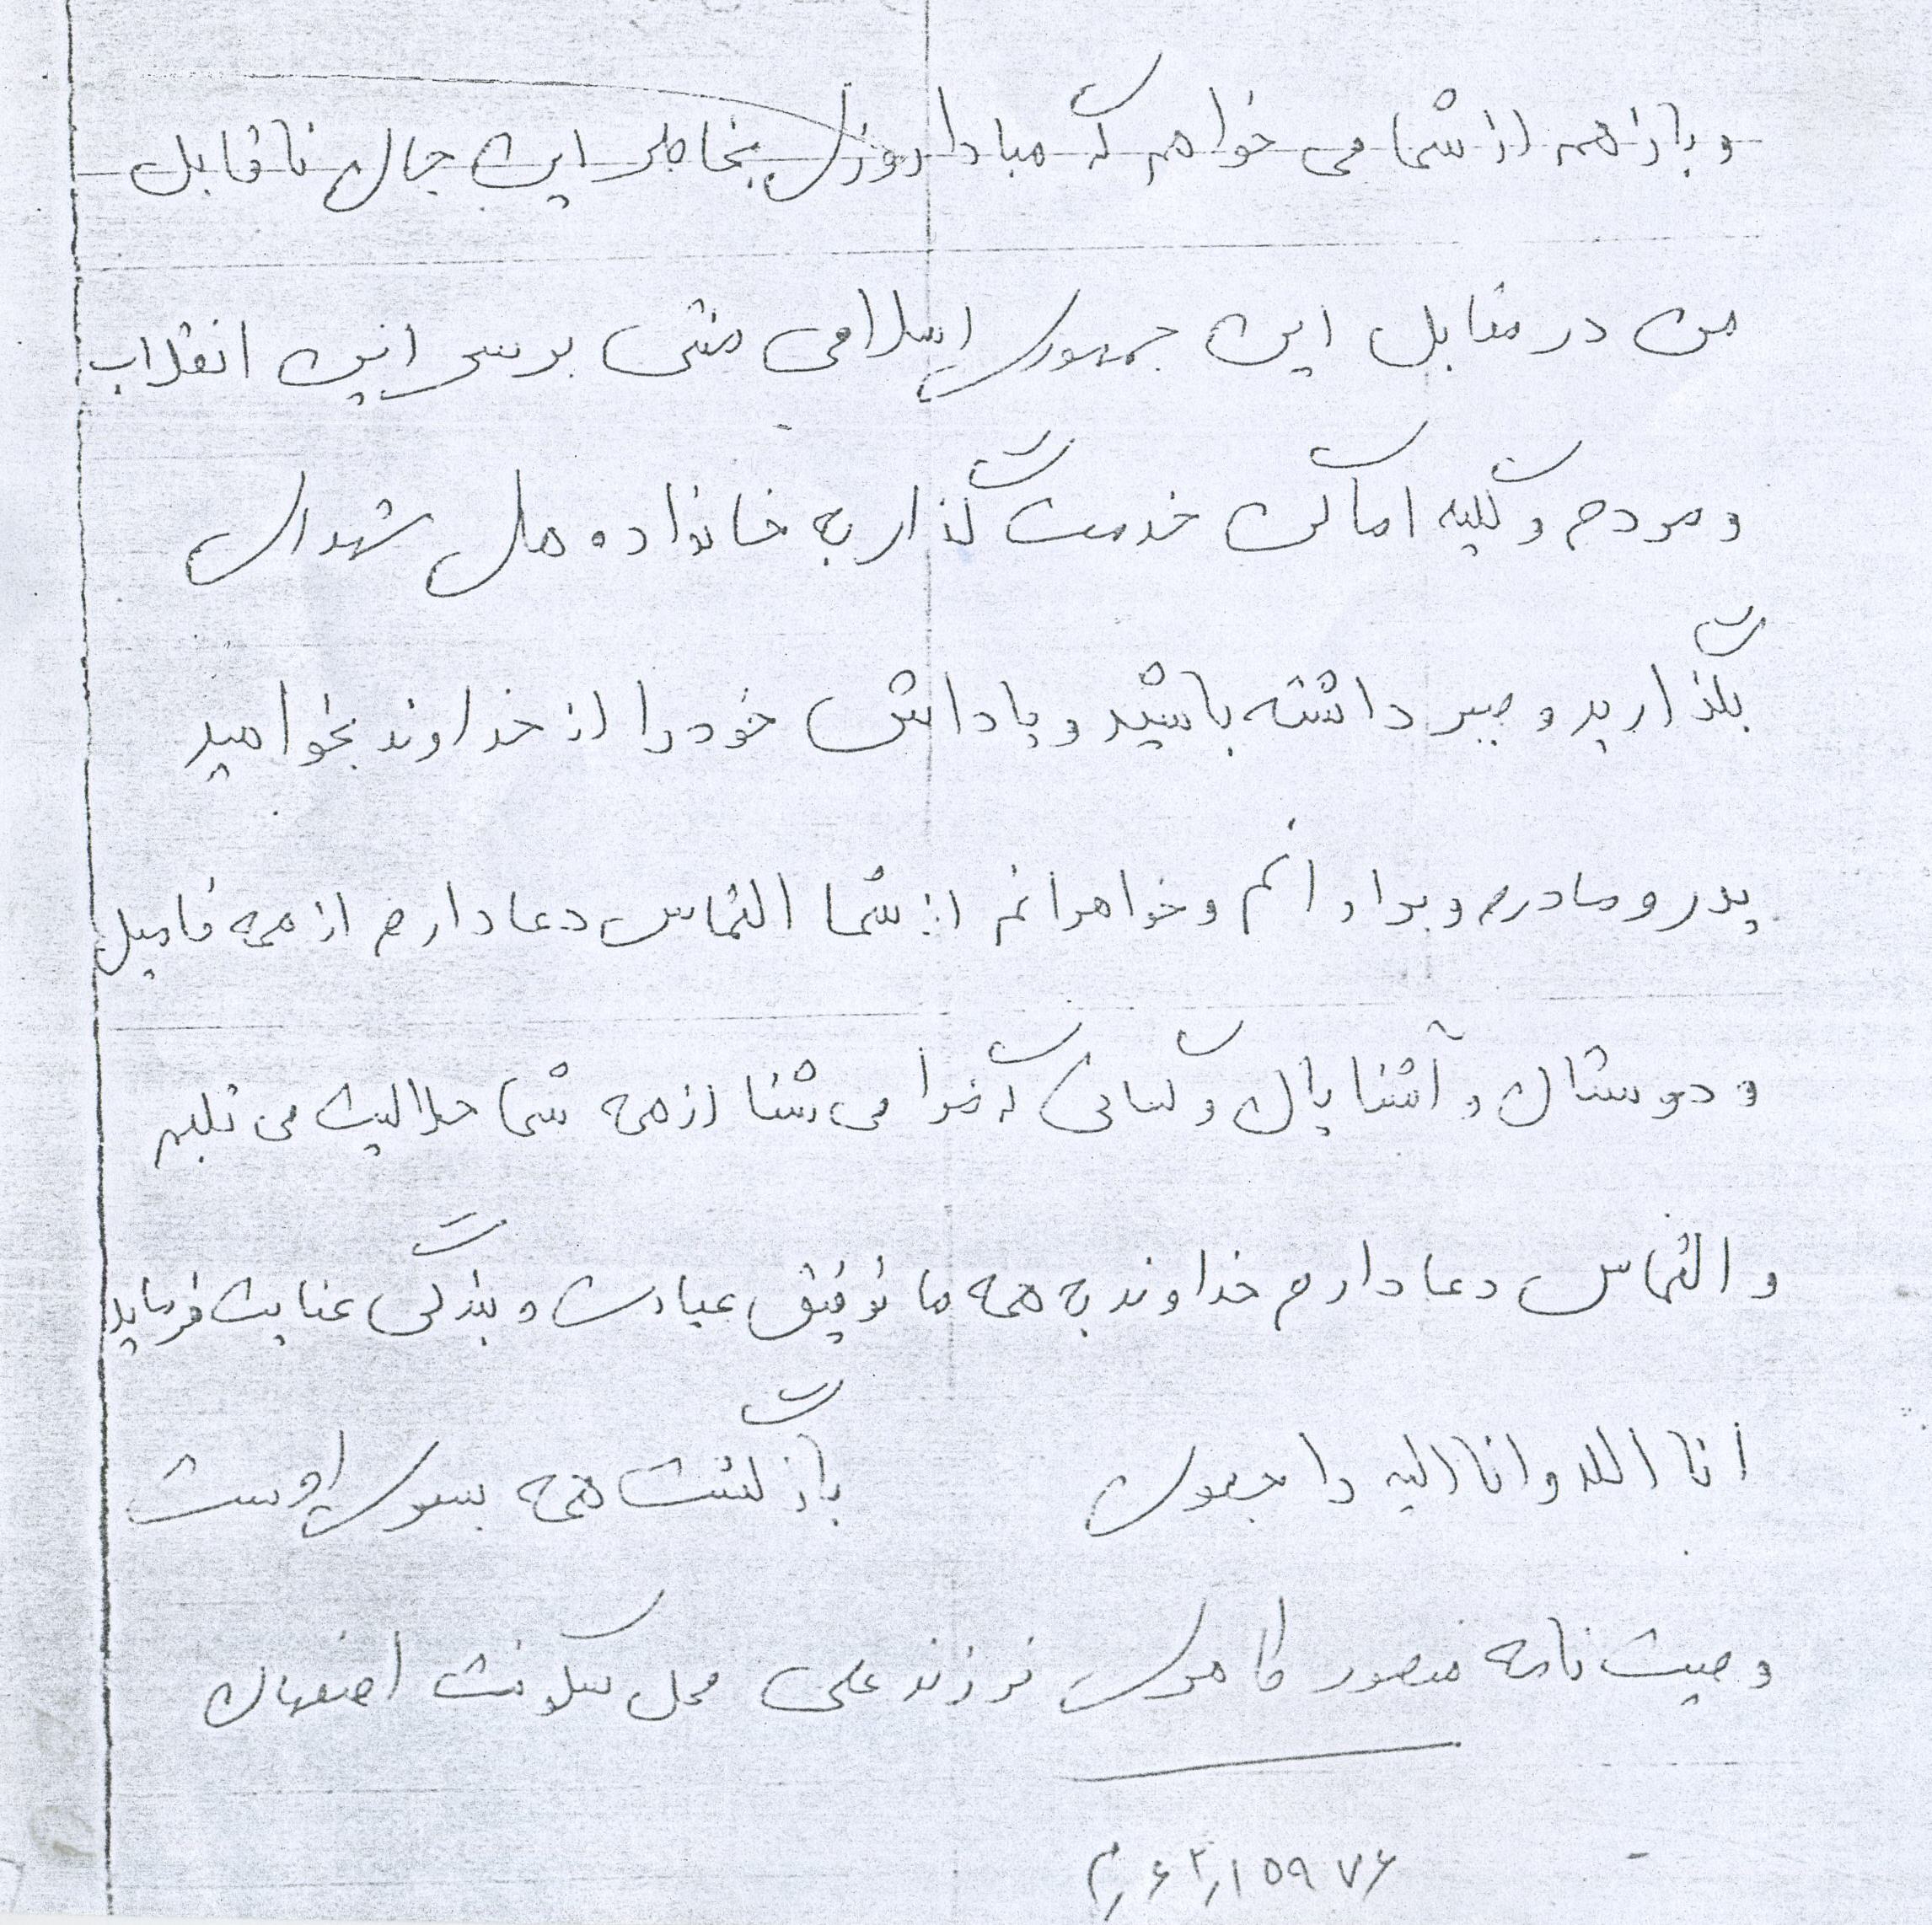 و باز همه از شما می خواهم که مبادا روزی بخاطر این جان ناقابل
من در مقابل این جمهوری اسلامی منتی بر سر این انقلاب
و مردم و کلیه اماکن خدمت گذار به خانواده های شهدای
بگذارید و صبر داشته باشید و پاداش خود را از خداوند بخواهید
پدر و مادرم و برادرانم و خواهرانم از شما التماس دعا دارم از همه فامیل
و دوستان و آشنایان و کسانی که مرا می شنا از همه شما حلالیت می تلبم
و التماس دعا دارم خداوند به همه ما توفیق عبادت و بندگی عنایت فرماید
انا الله و انا الیه راجعون بازگشت همه بسوی اوست
وصیت نامه منصور فرزند علی محل سکونت اصفهان